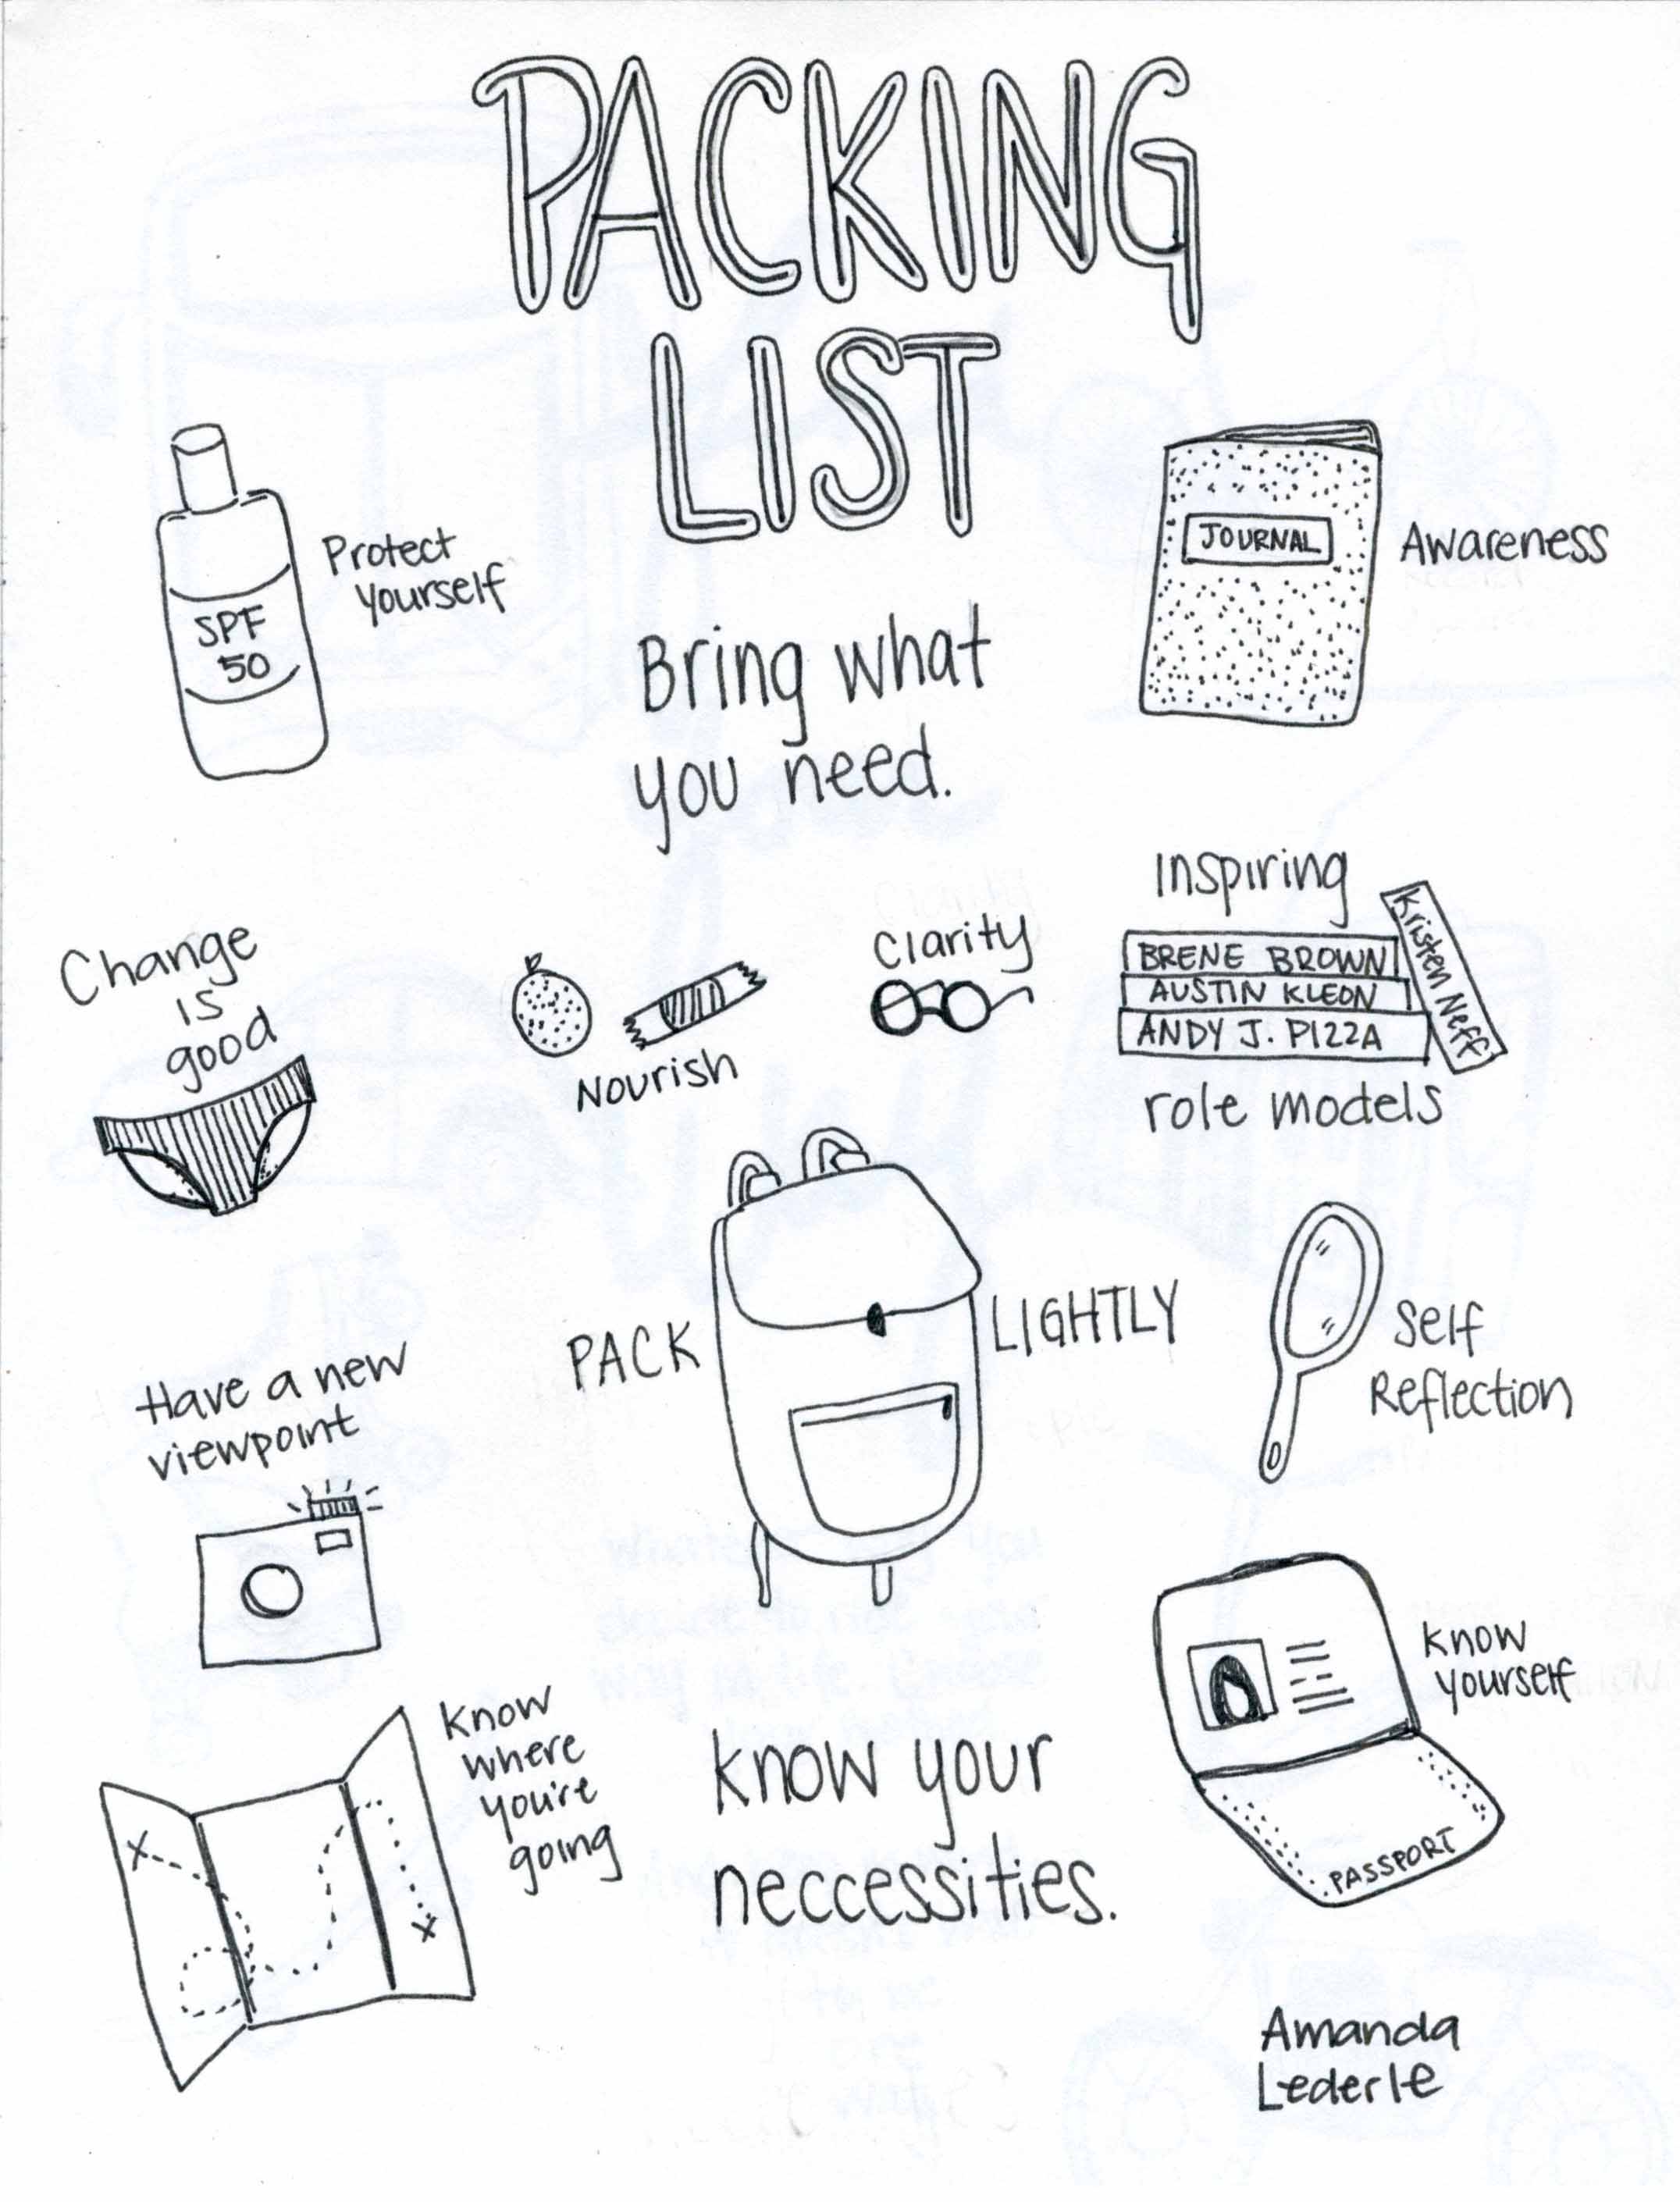 PACKING
LIST
SPF
50
Protect
yourself
JOURNAL
Awareness
Bring what
you need.
Change
is
good
Nourish
Clarity
Inspiring
BRENE BROWN
AUSTIN KLEON
ANDY J. PIZZA
Kristen Neff
role models
PACK LIGHTLY
Self
Reflection
Have a new
viewpoint
Know
where
you're
going
know your
neccessities.
Know
yourself
PASSPORT
Amanda
Lederle